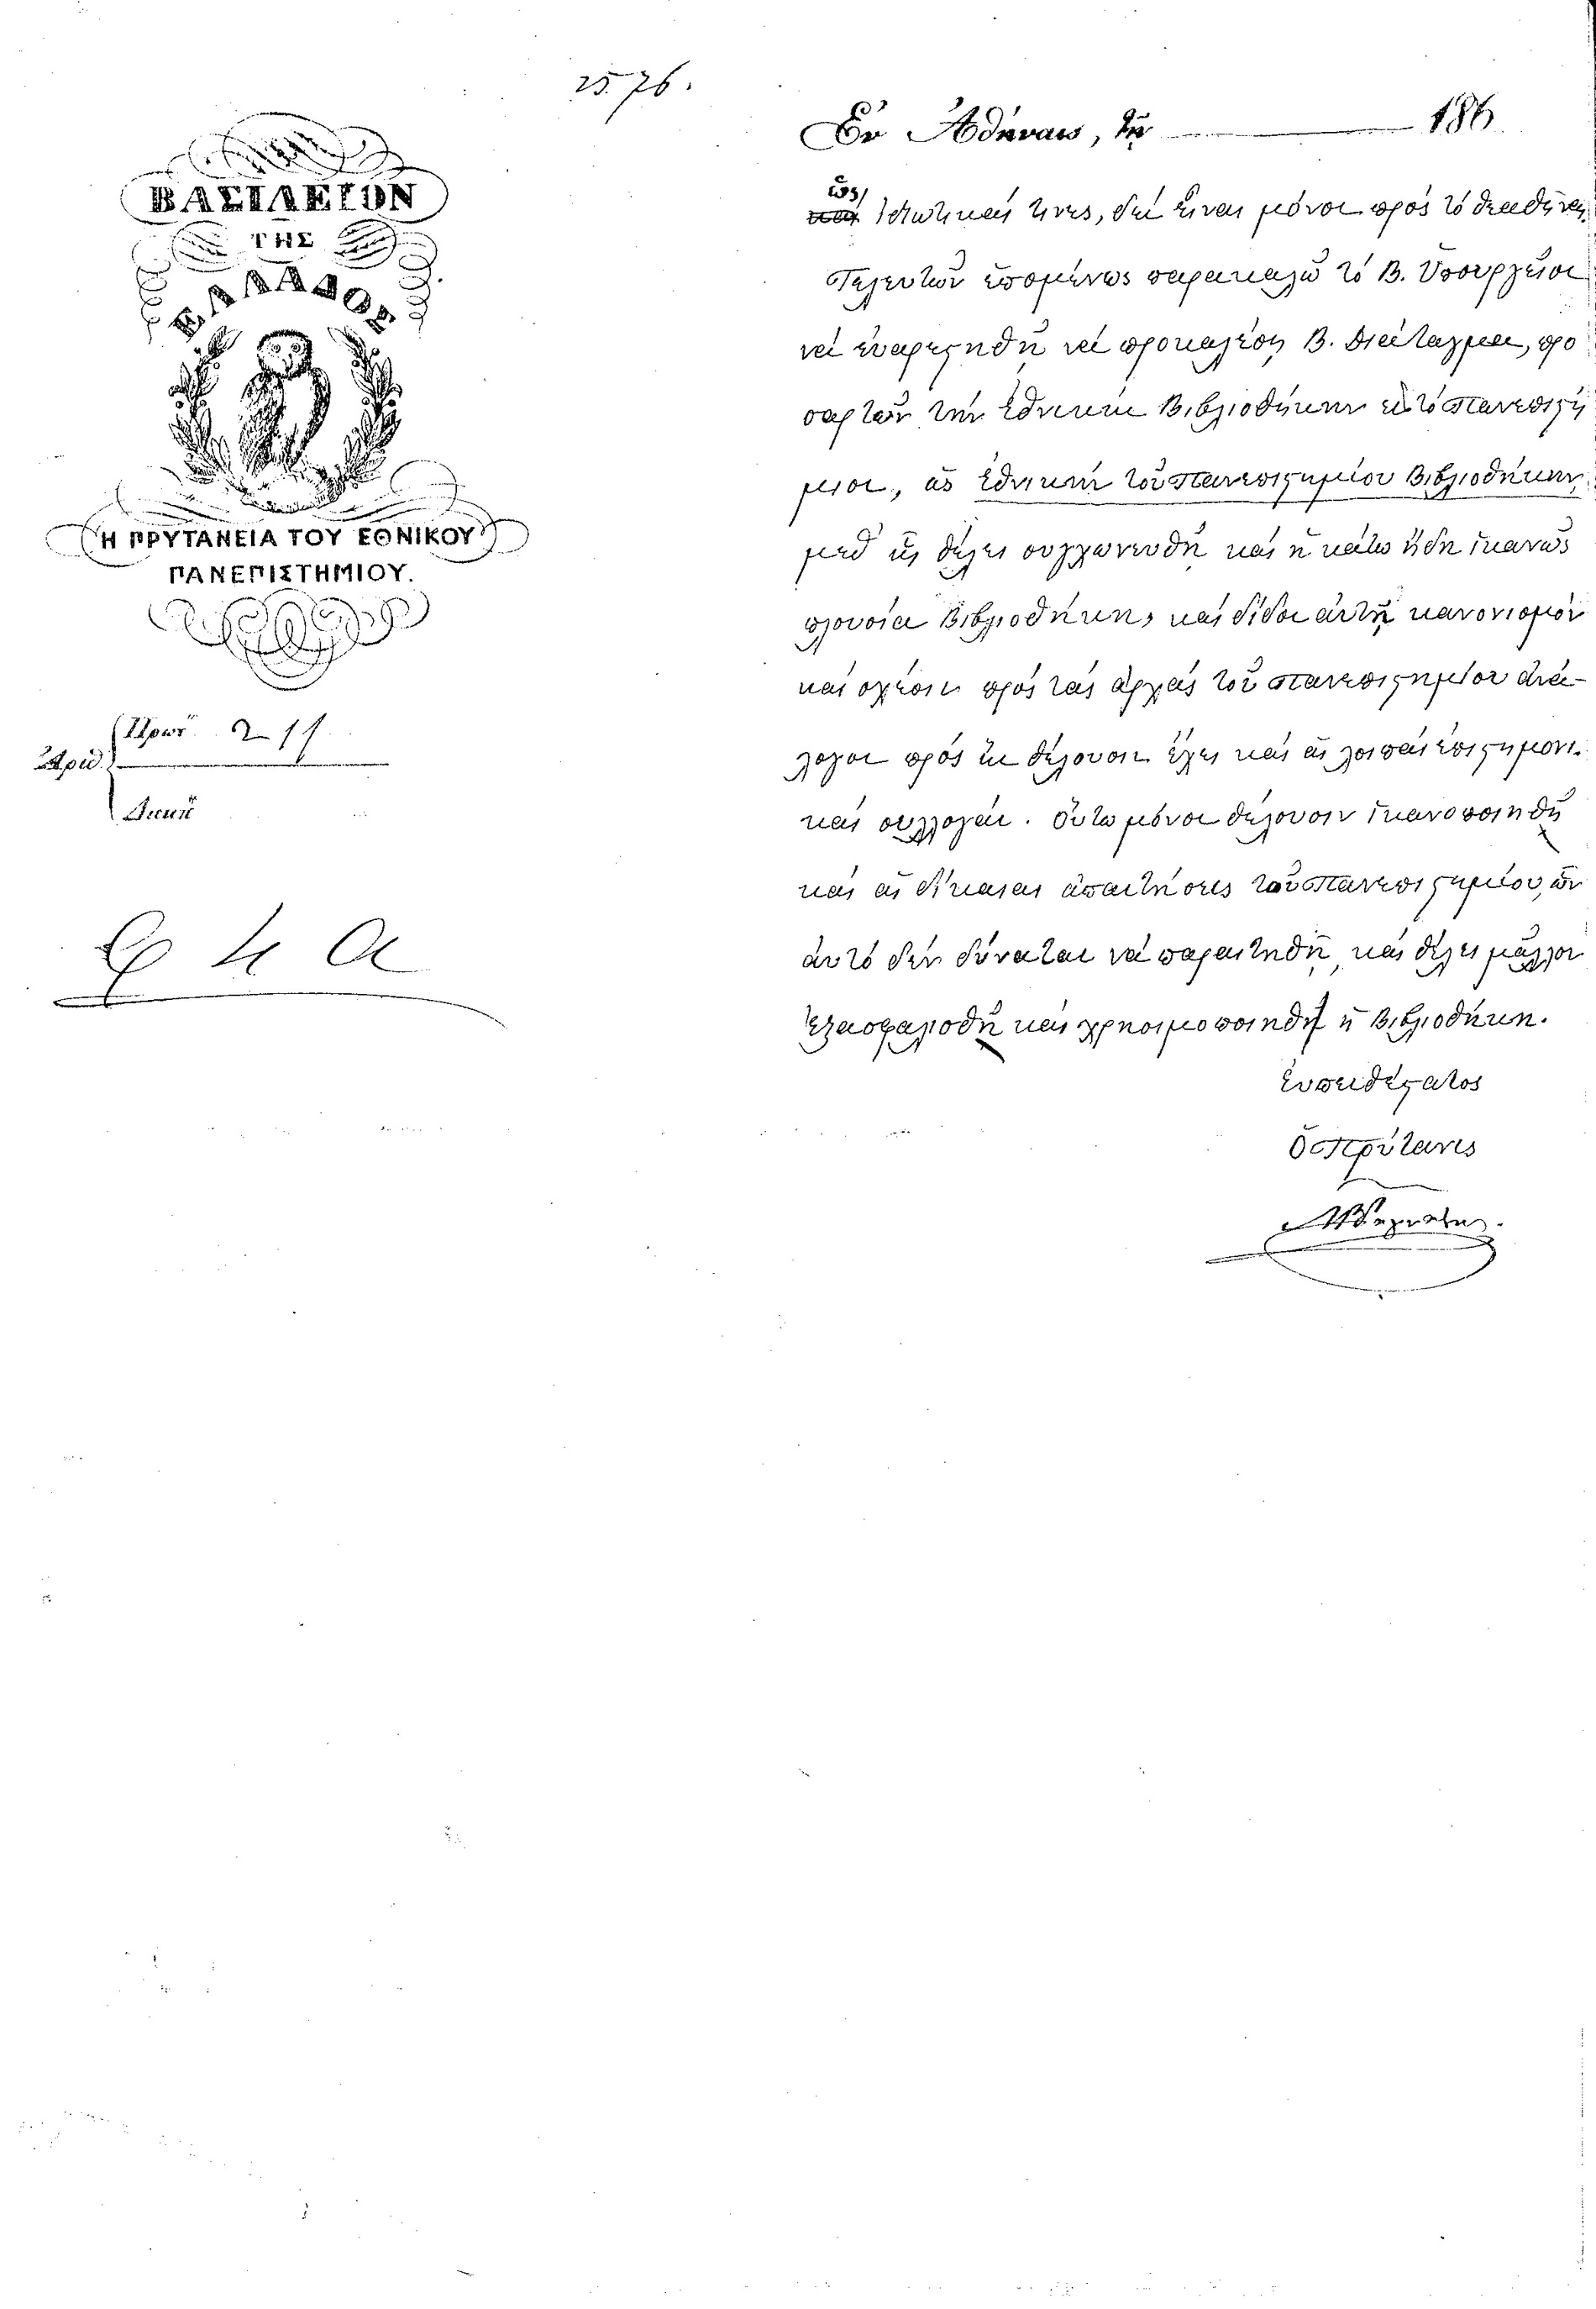 25.76.
ΒΑΣΙΛΕΙΟΝ
ΤΗΣ
ΕΛΛΑΔΟΣ
Η ΠΡΥΤΑΝΕΙΑ ΤΟΥ ΕΘΝΙΚΟΥ
ΠΑΝΕΠΙΣΤΗΜΙΟΥ.
Ἀριθ. Πρωτ. 211
Διεκπ.
Ἐν Ἀθήναις, τῇ 186
ὡς
καὶ ἰδιωτικαί τινες, δὲν εἶναι μόνον πρὸς τὸ θεαθῆναι.
Τελευτῶν ἑπομένως παρακαλῶ τὸ Β. Ὑπουργεῖον
νὰ εὐαρεστηθῇ νὰ προκαλέσῃ Β. Διάταγμα, προ
σαρτῶν τὴν Ἐθνικὴν Βιβλιοθήκην εἰς τὸ Πανεπιστή
μιον, ὡς Ἐθνικὴν τοῦ Πανεπιστημίου Βιβλιοθήκην,
μεθ' ἧς θέλει συγχωνευθῆ καὶ ἡ κάτω ἤδη ἱκανῶς
πλουσία Βιβλιοθήκη, καὶ δίδον αὐτῇ κανονισμὸν
καὶ σχέσιν πρὸς τὰς ἀρχὰς τοῦ Πανεπιστημίου ἀνά-
λογον πρὸς ἣν θέλουσιν ἔχει καὶ αἱ λοιπαὶ ἐπιστημονι-
καὶ συλλογαί. Οὕτω μόνον θέλουσιν ἱκανοποιηθῆ
καὶ αἱ δίκαιαι ἀπαιτήσεις τοῦ Πανεπιστημίου, ὧν
αὐτὸ δὲν δύναται νὰ παραιτηθῇ, καὶ θέλει μᾶλλον
ἐξασφαλισθῆ καὶ χρησιμοποιηθῆ ἡ Βιβλιοθήκη.
Εὐπειθέστατος
Ὁ Πρύτανις